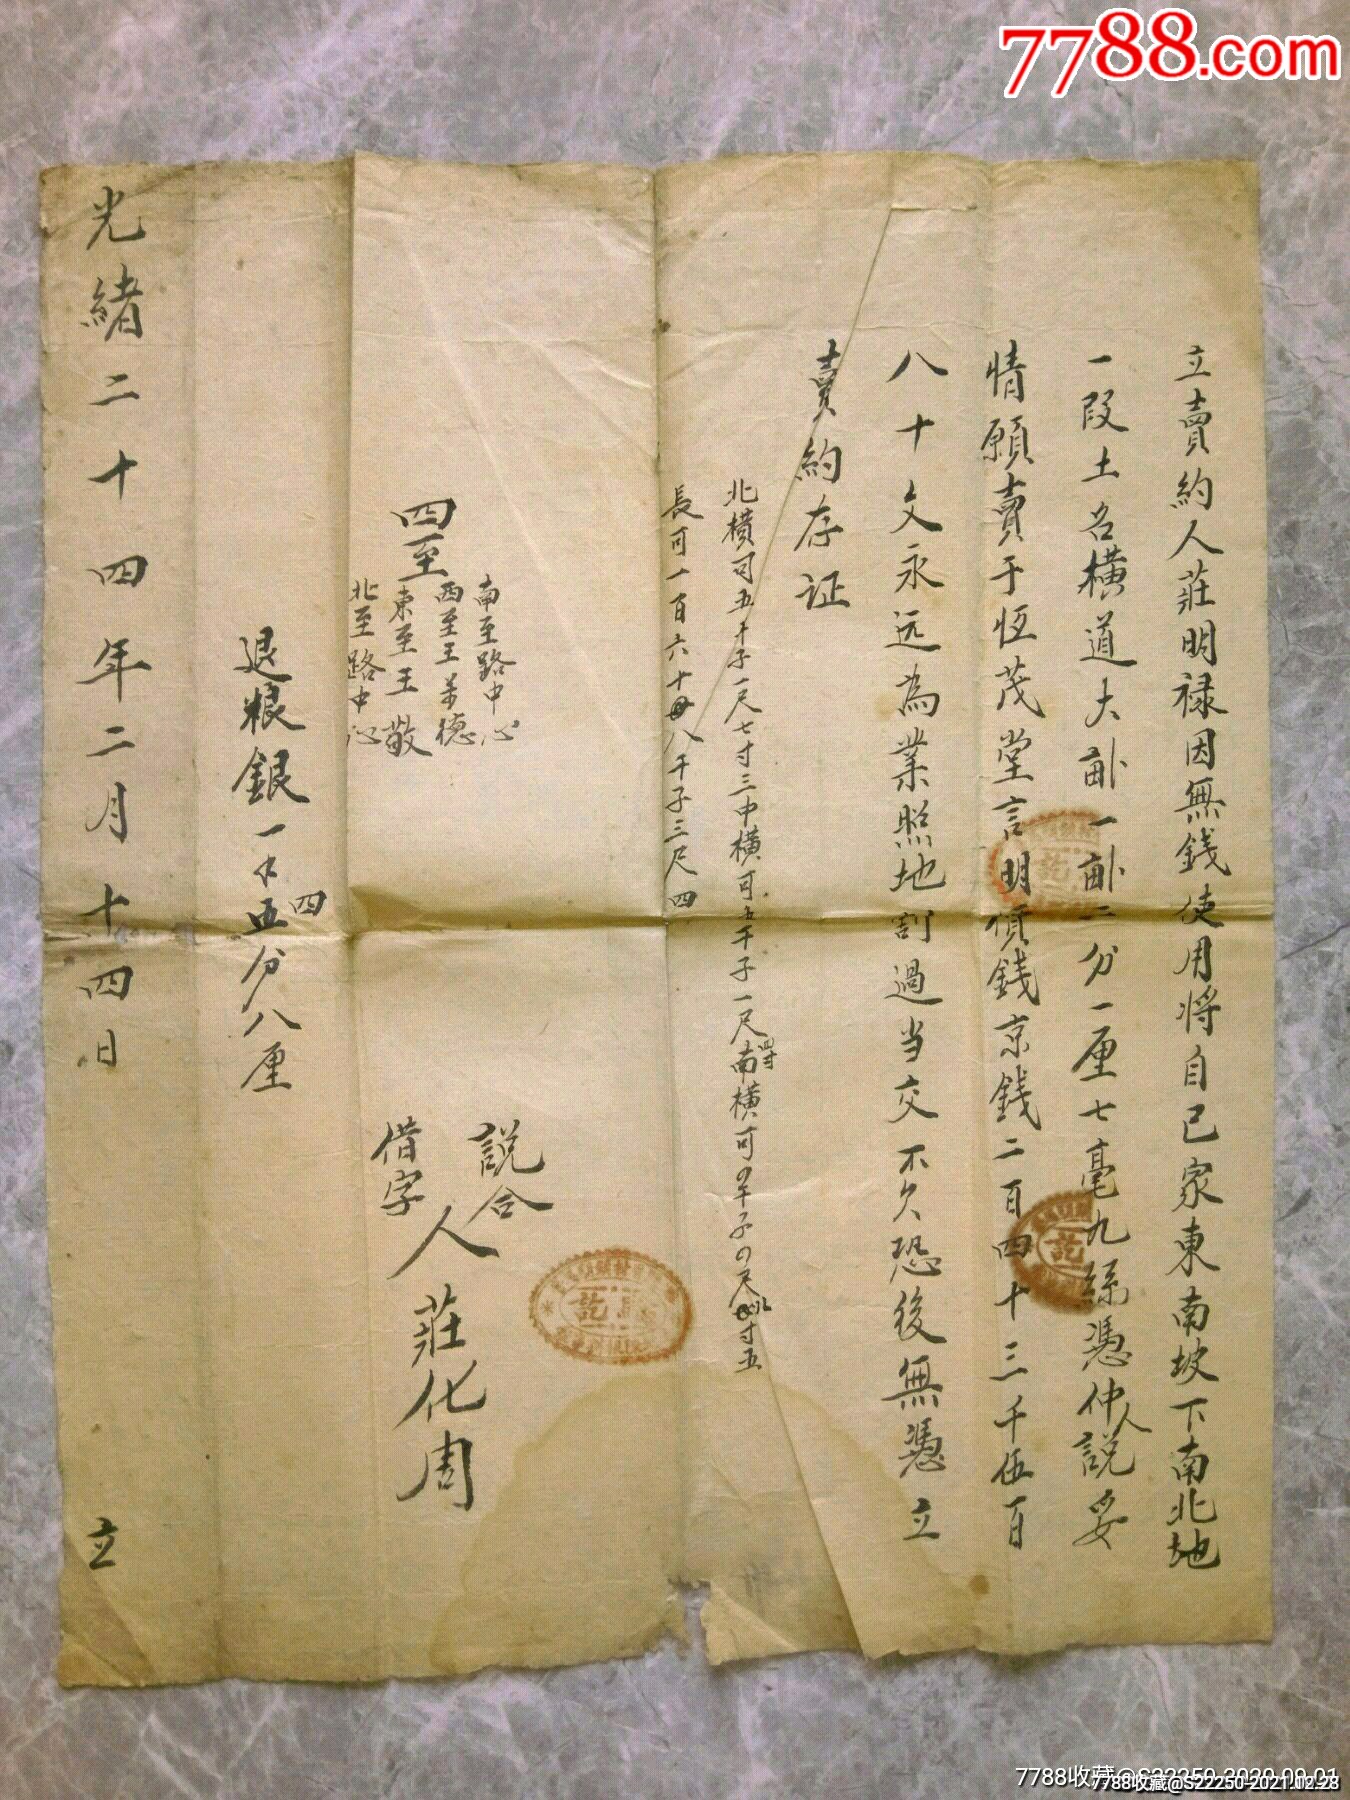 7788.com
立賣約人莊明禄因無錢使用將自己家東南坡下南北地
一段土名橫道大畝一畝二分一厘七毫九絲憑仲人說妥
情願賣于恆茂堂言明價錢京錢二百四十三千伍百
八十文永远為業照地割過当交不欠恐後無憑立
賣約存证
北橫可五干子一尺七寸三中橫可五干子一尺四寸南橫可
長可一百六十 八干子三尺四
四至
南至路中心
西至王 德
東至王敬
北至路中心
說合
借字
人莊化周
退粮銀一 四分八厘
光緒二十四年二月十四日 立
7788收藏@S22250 2020.09.01
7788收藏@S22250 2021.02.28